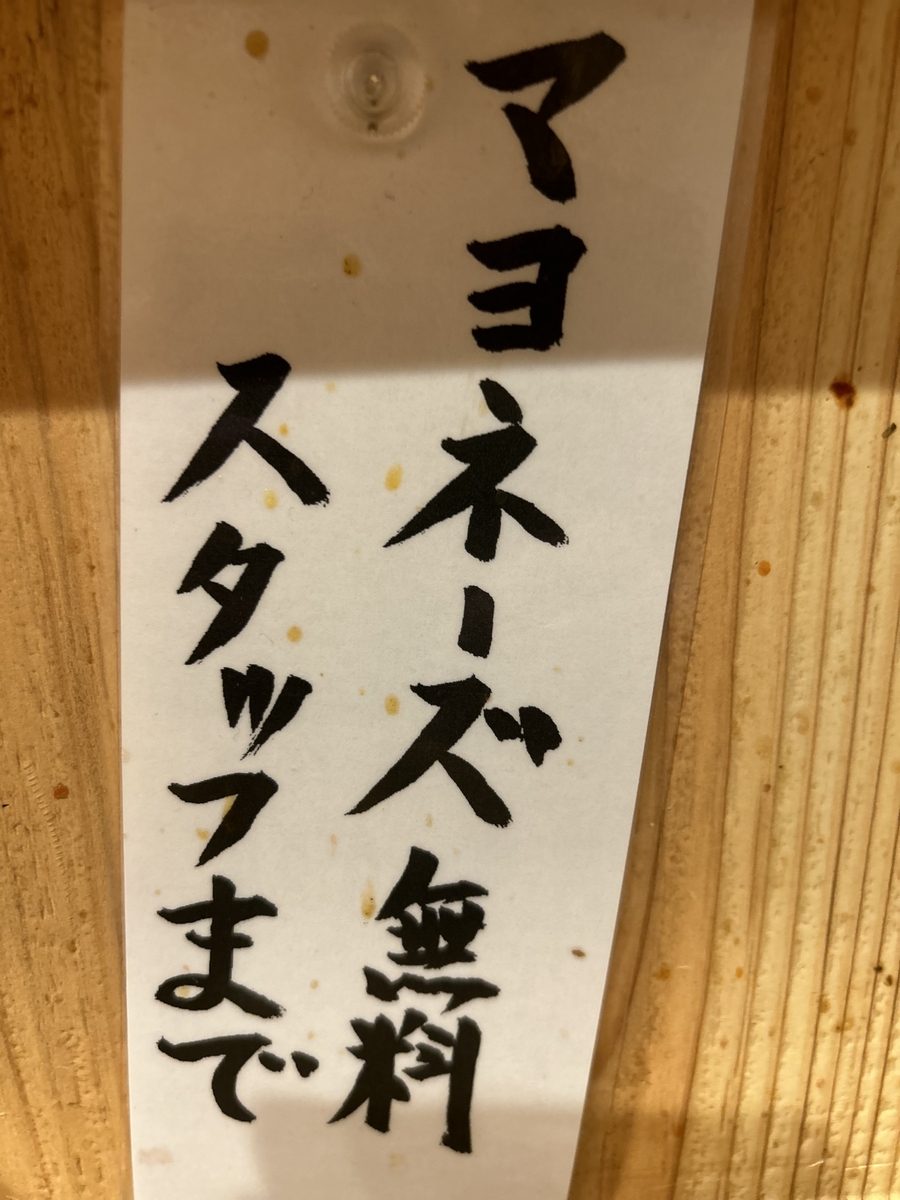 マヨネーズ無料
スタッフまで